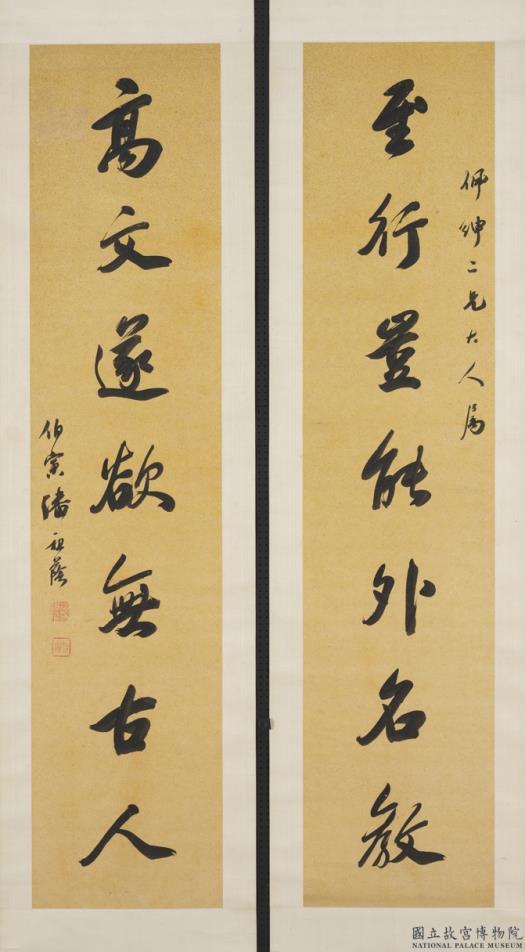 佩紳二兄大人属
至行豈能外名教
高文遂欲無古人
伯寅潘祖蔭
國立故宮博物院
NATIONAL PALACE MUSEUM